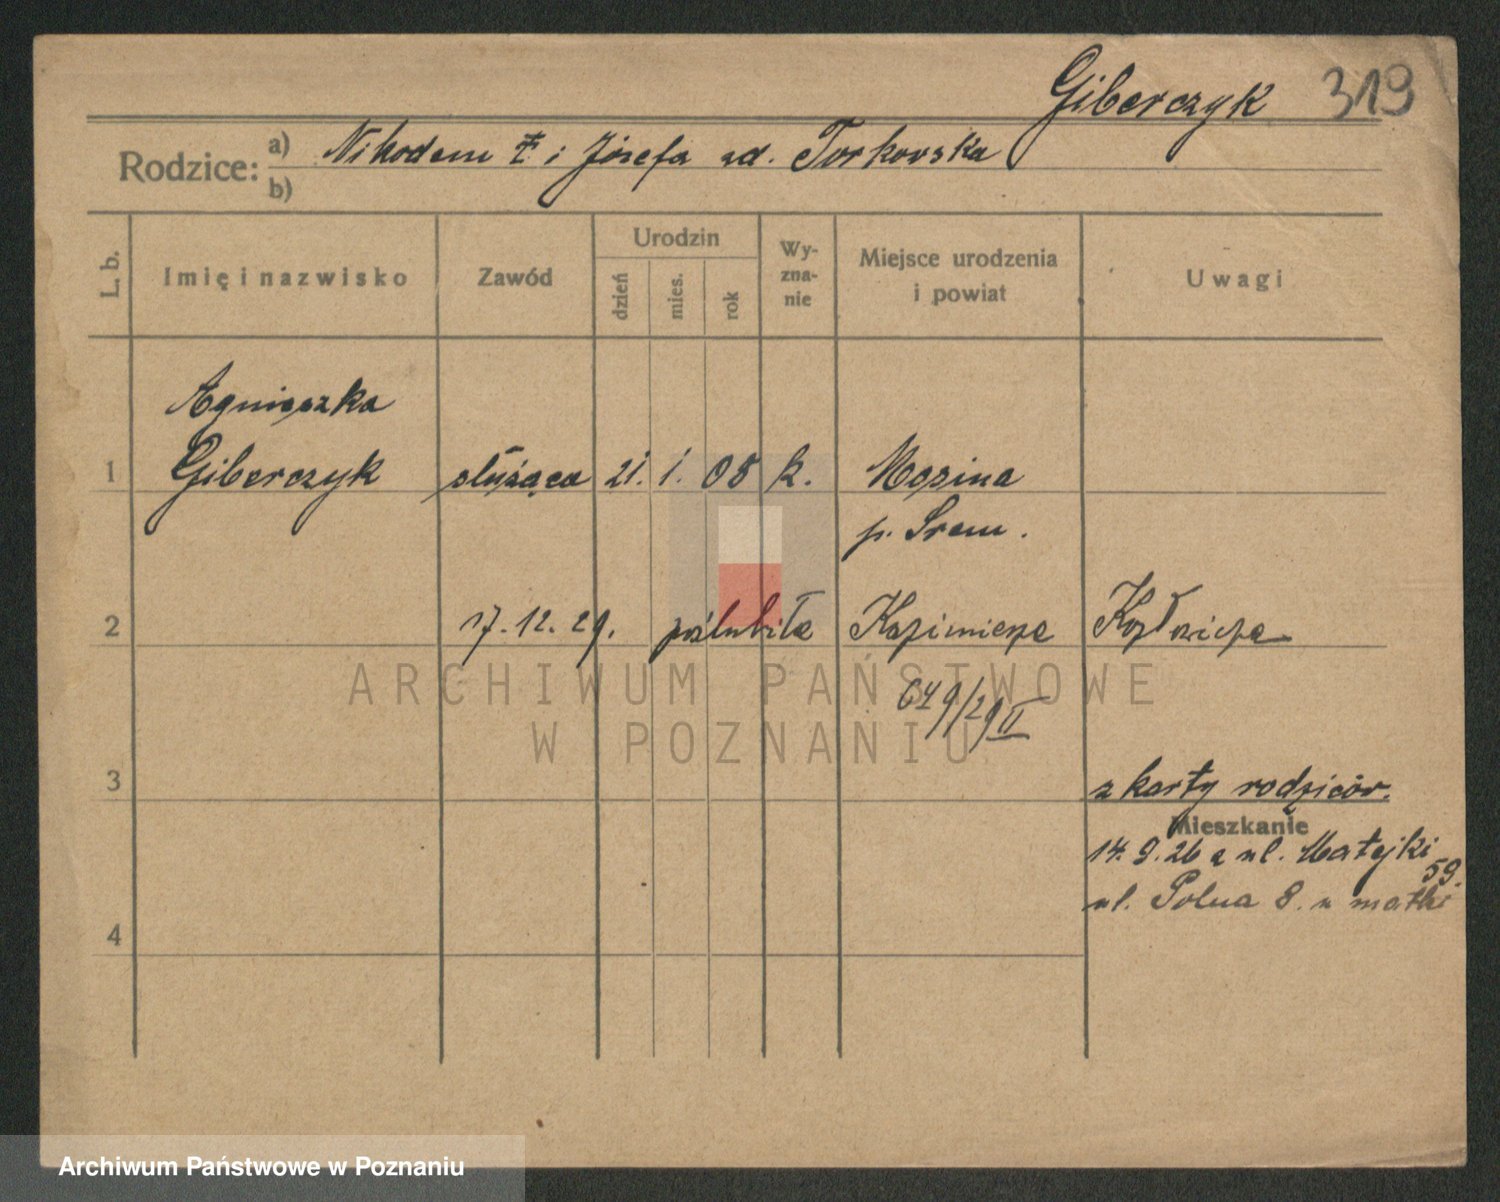 Giberczyk 319
Rodzice: a) Nikodem ‡ i Józefa zd. Torkowska
b)
L. b.
Imię i nazwisko
Zawód
Urodzin
dzień
mies.
rok
Wy-
zna-
nie
Miejsce urodzenia
i powiat
Uwagi
Agnieszka
1 Giberczyk służąca 21. 1. 08 k. Mosina
p. Śrem.
2 17.12.29. poślubiła Kazimierza
649/29 II
3 z karty rodziców.
Mieszkanie
14.9.26 ul. Matejki
59.
ul. Polna 8. u matki
4
ARCHIWUM PAŃSTWOWE
W POZNANIU
Archiwum Państwowe w Poznaniu